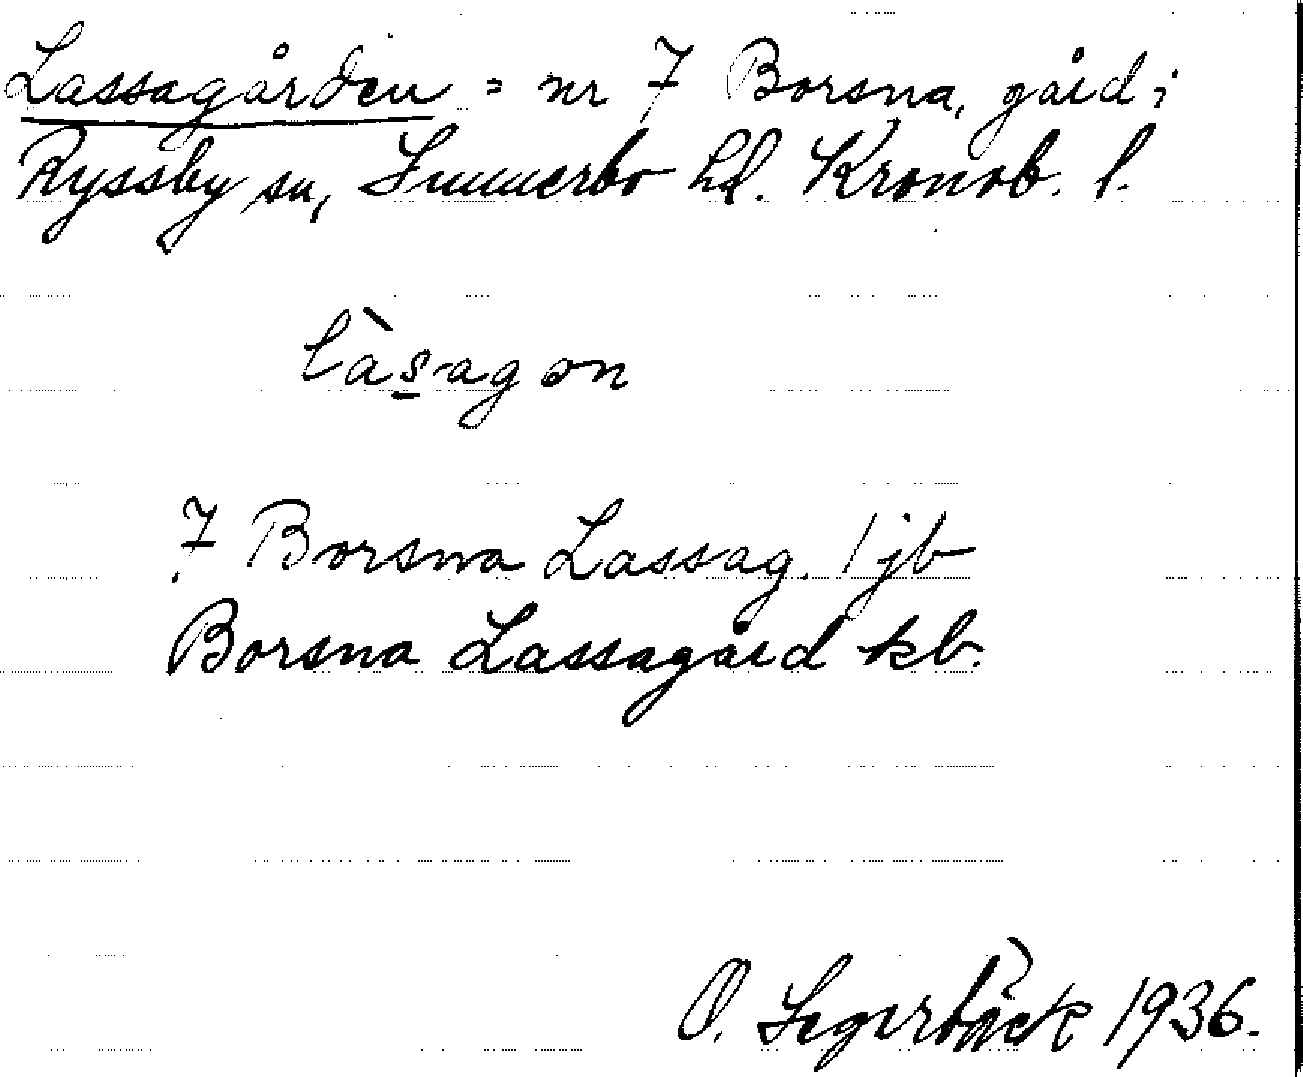 Lassagården = nr 7 Borsna, gård i
Ryssby sn, Sunnerbo hd. Kronob. l.
làs̲agon
7 Borsna Lassag. 1 jb
Borsna Lassagård kb.
O. Segerbäck 1936.